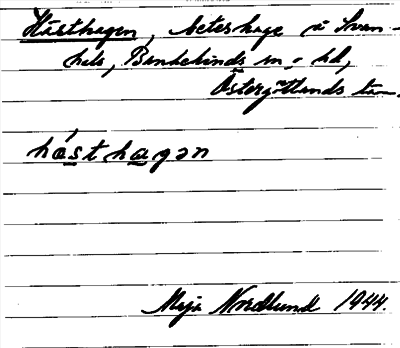 Hästhagen, beteshage i Sven-
hels, Bankekinds sn o hd,
Östergötlands län.
hæ´st hagən
Maja Nordlund 1944.